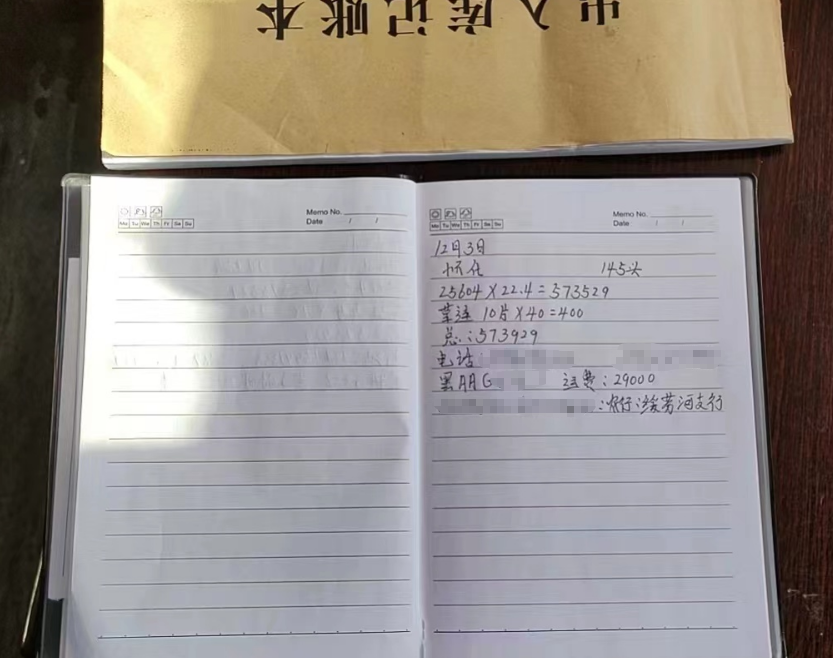 出入库记账本
Memo No.
Date / /
Mo Tu We Th Fr Sa Su
Memo No.
Mo Tu We Th Fr Sa Su
Date / /
12月3日
怀化 145头
25604×22.4=573529
10片×40=400
总:573929
电话
黑AAG 运费:29000
:农行:绥芬河支行